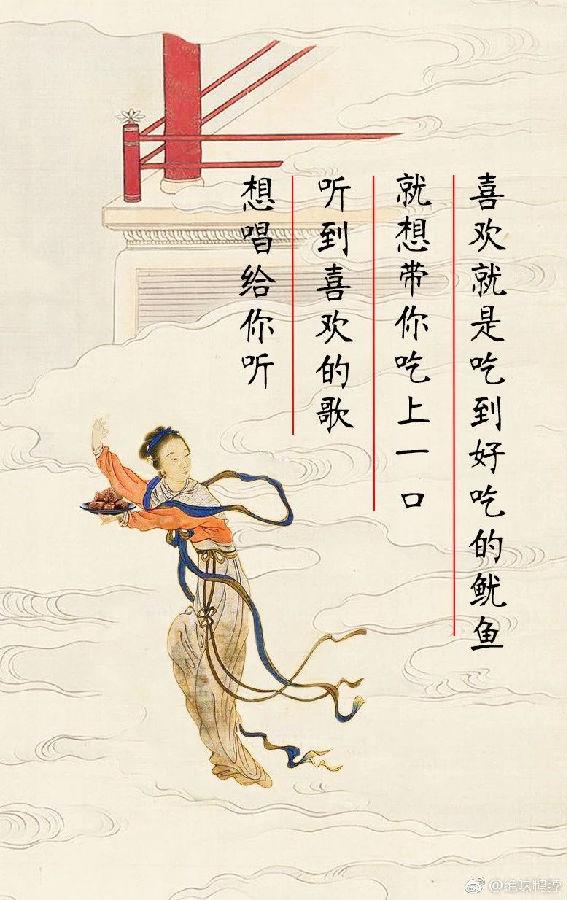 喜欢就是吃到好吃的鱿鱼
就想带你吃上一口
听到喜欢的歌
想唱给你听